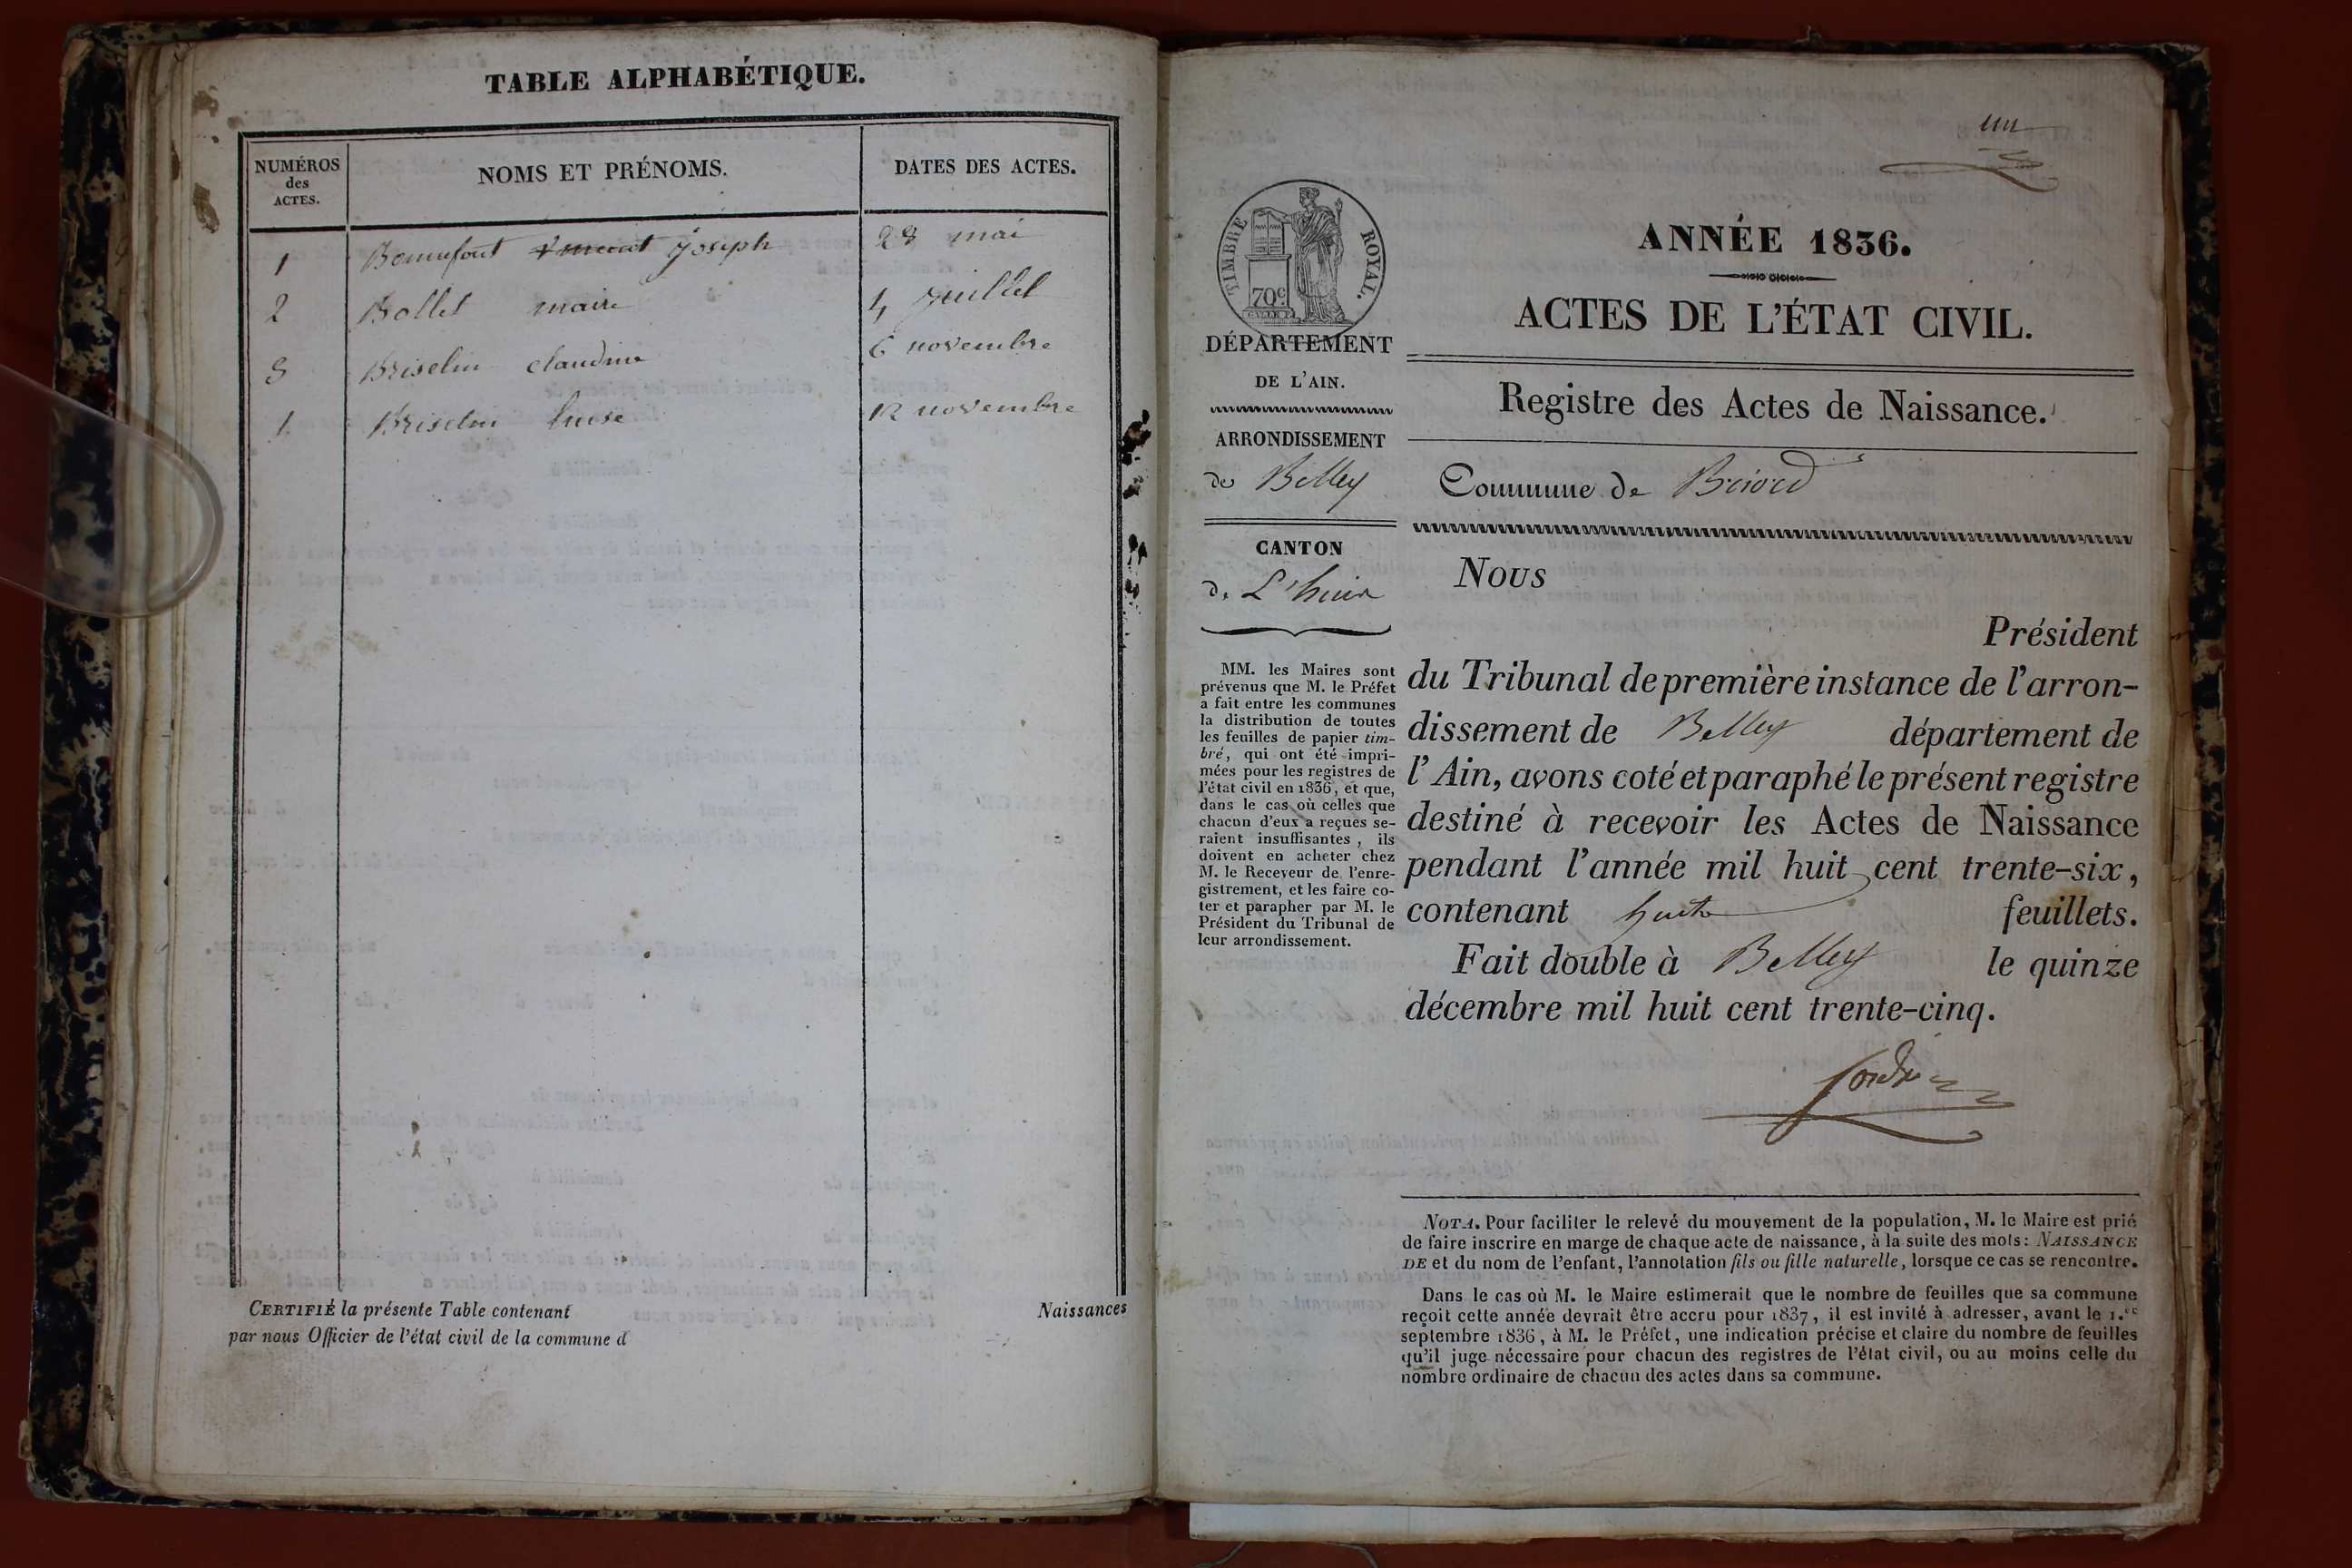 TABLE ALPHABÉTIQUE.
NUMÉROS
des
ACTES.
NOMS ET PRÉNOMS.
DATES DES ACTES.
1 Joseph 28 mai
2 Bollet marie 4 Juillet
3 Briselin claudine 6 novembre
Briselin 12 novembre
CERTIFIÉ la présente Table contenant Naissances
par nous Officier de l'état civil de la commune d
un
TIMBRE ROYAL.
70c
DÉPARTEMENT
DE L'AIN.
ARRONDISSEMENT
de Belley
CANTON
de L'huis
MM. les Maires sont
prévenus que M. le Préfet
a fait entre les communes
la distribution de toutes
les feuilles de papier tim-
bré, qui ont été impri-
mées pour les registres de
l'état civil en 1836, et que,
dans le cas où celles que
chacun d'eux a reçues se-
raient insuffisantes, ils
doivent en acheter chez
M. le Receveur de l'enre-
gistrement, et les faire co-
ter et parapher par M. le
Président du Tribunal de
leur arrondissement.
ANNÉE 1836.
ACTES DE L'ÉTAT CIVIL.
Registre des Actes de Naissance.
Commune de Briord
Nous
Président
du Tribunal de première instance de l'arron-
dissement de Belley département de
l'Ain, avons coté et paraphé le présent registre
destiné à recevoir les Actes de Naissance
pendant l'année mil huit cent trente-six,
contenant huit feuillets.
Fait double à Belley le quinze
décembre mil huit cent trente-cinq.
NOTA. Pour faciliter le relevé du mouvement de la population, M. le Maire est prié
de faire inscrire en marge de chaque acte de naissance, à la suite des mots: NAISSANCE
DE et du nom de l'enfant, l'annotation fils ou fille naturelle, lorsque ce cas se rencontre.
Dans le cas où M. le Maire estimerait que le nombre de feuilles que sa commune
reçoit cette année devrait être accru pour 1837, il est invité à adresser, avant le 1.er
septembre 1836, à M. le Préfet, une indication précise et claire du nombre de feuilles
qu'il juge nécessaire pour chacun des registres de l'état civil, ou au moins celle du
nombre ordinaire de chacun des actes dans sa commune.